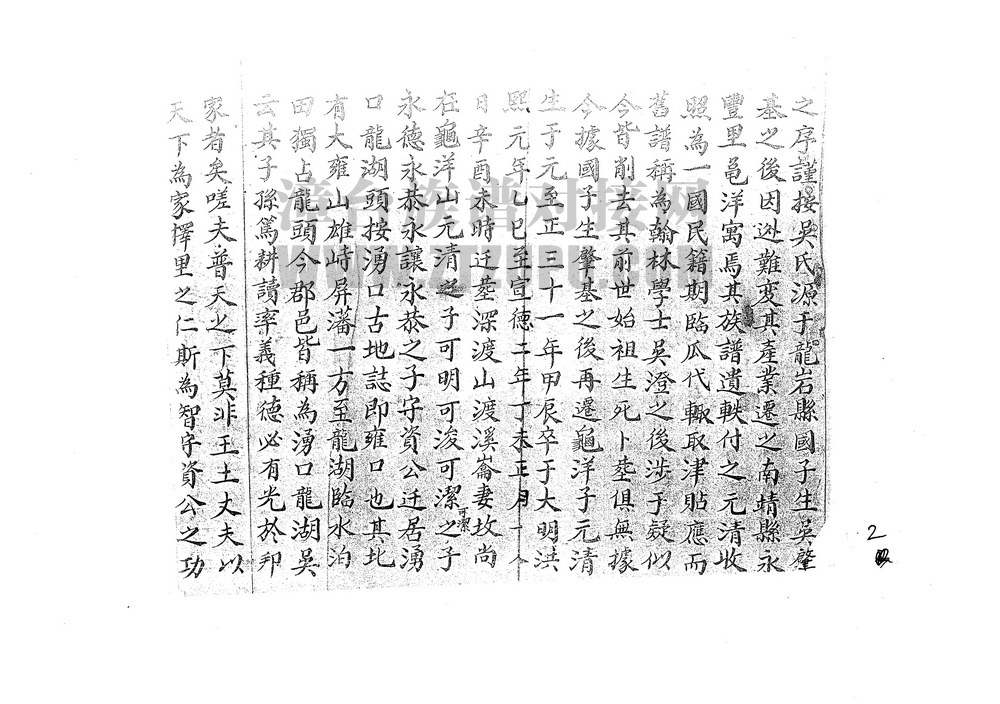 之序謹按吳氏源于龍岩縣國子生吳肇
基之後因逊難变其產業遷之南靖縣永
豐里邑洋寓焉其族譜遺軼付之元清收
照為一國民籍期臨瓜代輙取津貼應而
舊譜稱為翰林學士吳澄之後涉于疑似
今皆削去其前世始祖生死卜塟俱無據
今據國子生肇基之後再遷龜洋子元清
生于元至正三十一年甲辰卒于大明洪
熙元年乙巳至宣德二年丁未正月十八
日辛酉未時迁塟深渡山渡溪崙妻坟尚
在龜洋山元清之子可明可浚可潔可潔之子
永德永恭永讓永恭之子守資公迁居湧
口龍湖頭按湧口古地誌即雍口也其北
有大雍山雄峙屏藩一方至龍湖臨水泊
田獨占龍頭今郡邑皆稱為湧口龍湖吳
云其子孫篤耕讀率義種德必有光於邦
家者矣嗟夫普天之下莫非王土丈夫以
天下為家擇里之仁斯為智守資公之功
2
漳台族谱对接网
WWW.ZZZPW.COM